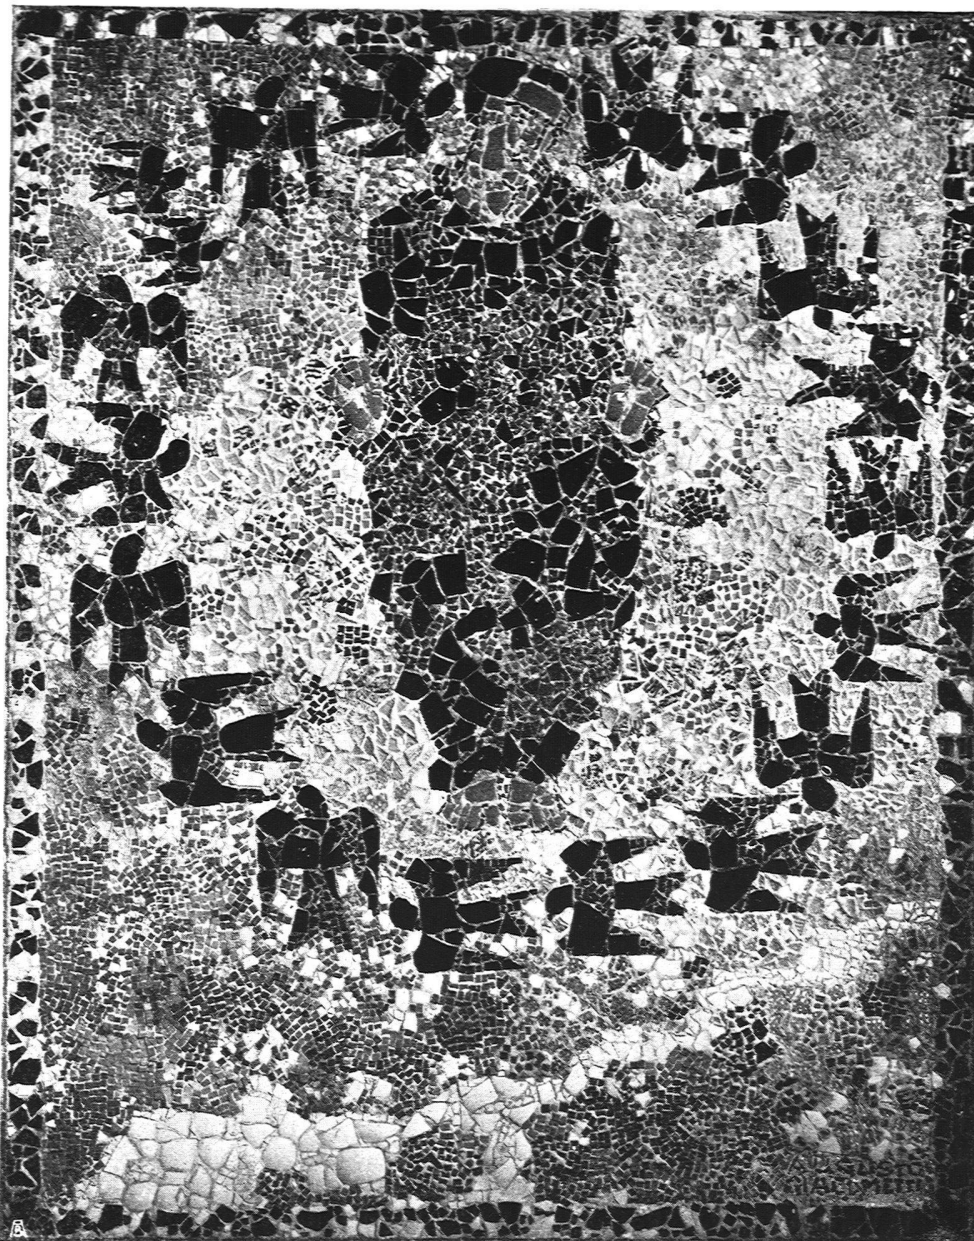 AUGUSTO
GIACOMETTI